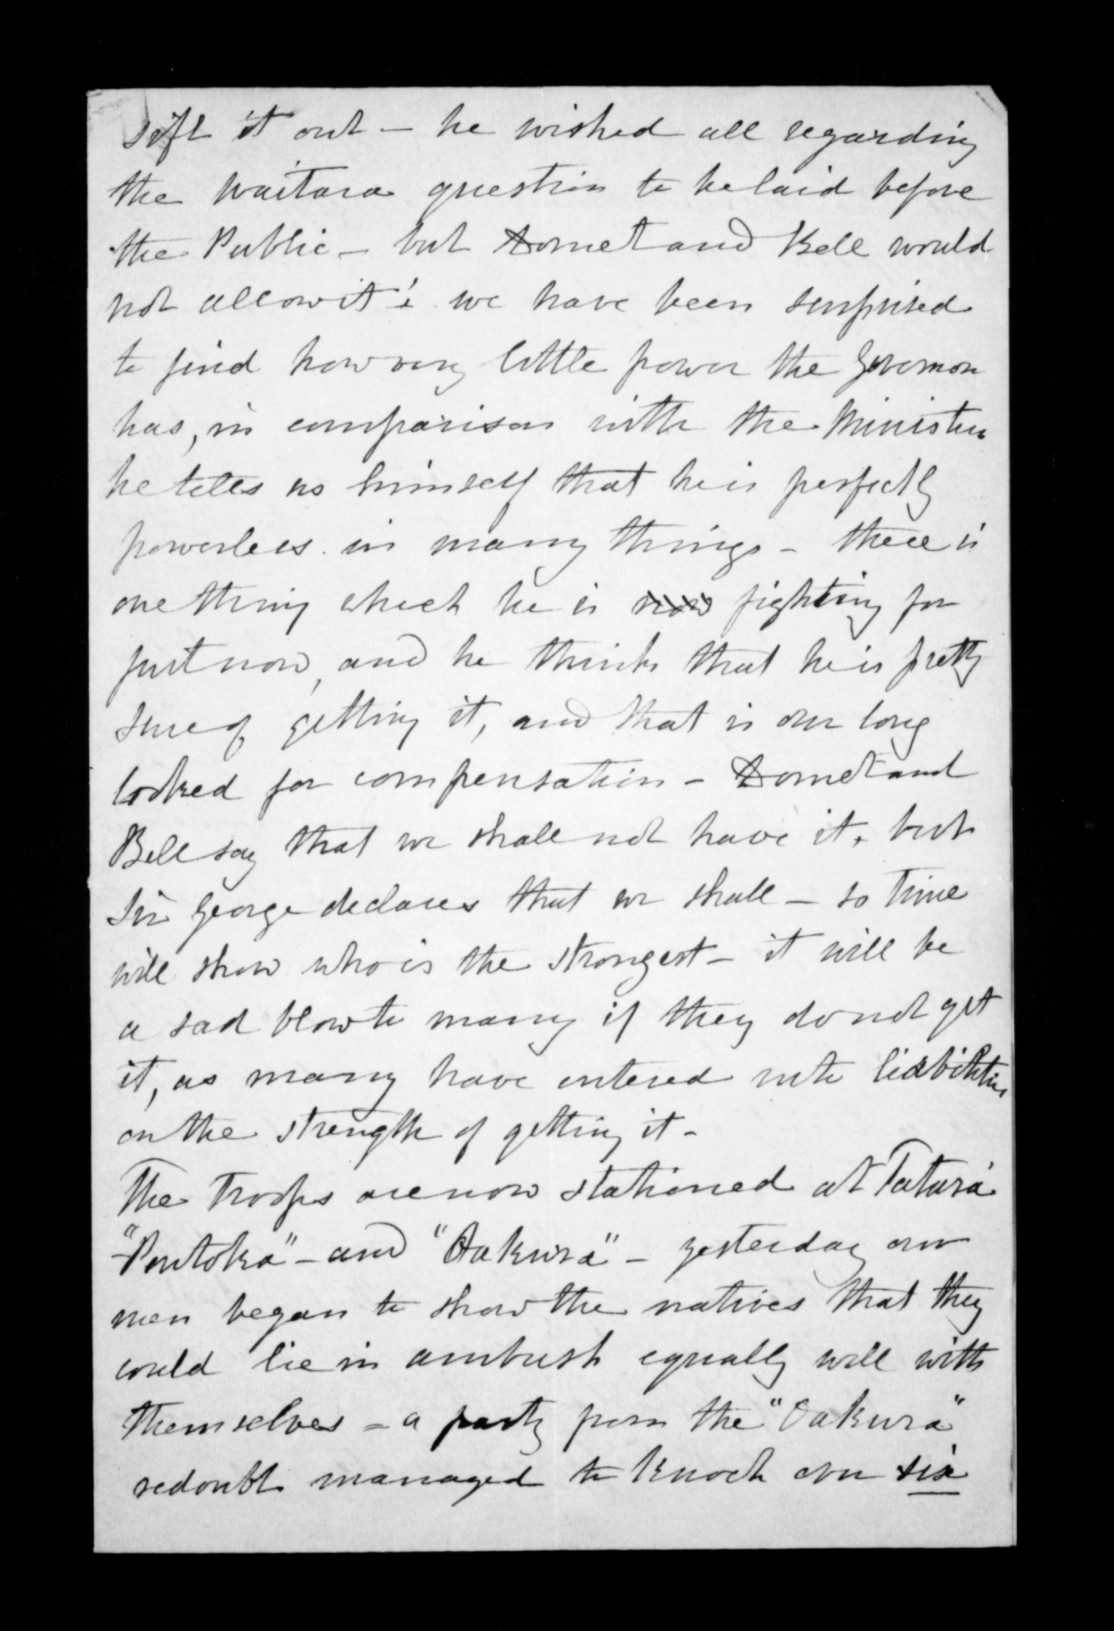 sift it out – he wished all regarding
the Waitara question to be laid before
the Public – but Domet and Bell would
not allow it & we have been surprised
to find how very little power the Governor
has, in comparison with the Minister
he tells us himself that he is perfectly
powerless in many things – there is
one thing which he is now fighting for
just now, and he thinks that he is pretty
sure of getting it, and that is our long
looked for compensation – Domet and
Bell say that we shall not have it, but
Sir George declares that we shall – so time
will show who is the strongest – it will be
a sad blow to many if they do not get
it, as many have entered into liabilities
on the strength of getting it –
The Troops are now stationed at Tatara
"Poutoko" – and "Oakura" – yesterday our
men began to show the natives that they
could lie in ambush equally well with
themselves – a party from the "Oakura"
redoubt managed to knock over six